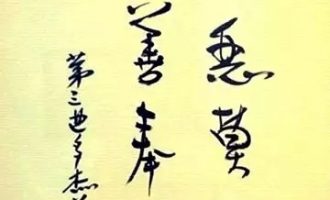 恶莫
善奉
第三世多杰